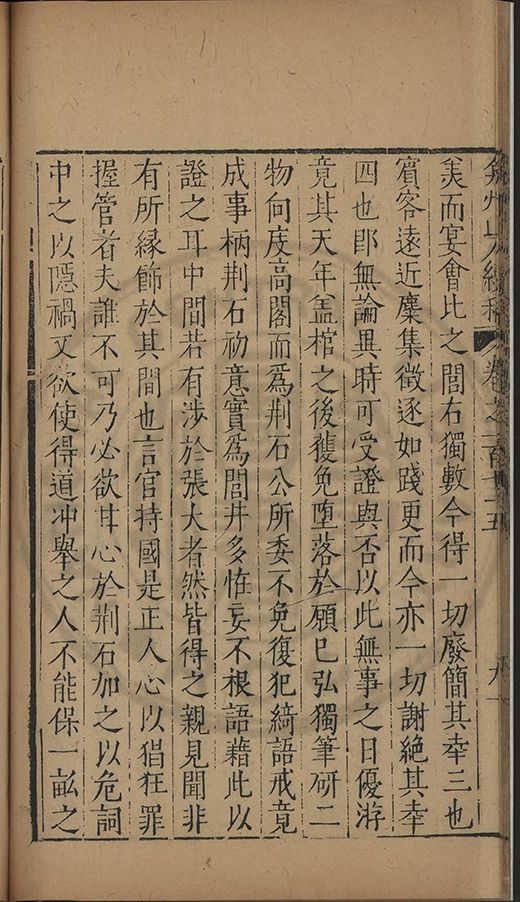 弇州山人續稿 卷之一百七十五 九
美而宴會比之閭右獨數今得一切廢簡其幸三也
賓客遠近麇集徵逐如踐更而今亦一切謝絕其幸
四也卽無論異時可受證與否以此無事之日優游
竟其天年盖棺之後獲免墮落於願已弘獨筆研二
物向庋高閣而爲荆石公所委不免復犯綺語戒竟
成事柄荆石初意實爲閭井多恠妄不根語藉此以
證之耳中間若有涉於張大者然皆得之親見聞非
有所緣飾於其間也言官持國是正人心以猖狂罪
握管者夫誰不可乃必欲甘心於荆石加之以危詞
中之以隱禍又欲使得道冲舉之人不能保一畆之